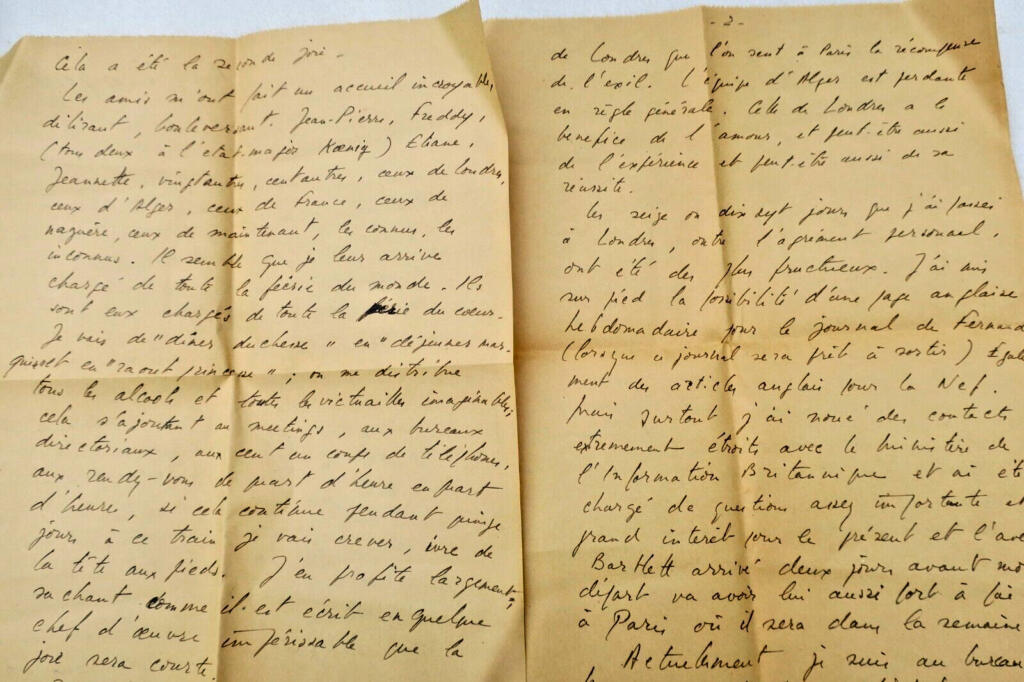 Cela a été la seconde joie -
Les amis m'ont fait un accueil incroyable,
délirant, bouleversant. Jean-Pierre, Freddy,
(tous deux à l'état-major Kœnig) Eliane,
Jeannette, vingt autres, cent autres, ceux de Londres,
ceux d'Alger, ceux de France, ceux de
naguère, ceux de maintenant, les connus, les
inconnus. Il semble que je leur arrive
chargé de toute la féerie du monde. Ils
sont eux chargés de toute la féerie du cœur.
Je vais de "dîner duchesse" en "déjeuner mar-
quise et en "raout princesse" ; on me distribue
tous les alcools et toutes les victuailles imaginables,
cela s'ajoutant au meetings, aux bureaux
directoriaux, aux cent un coups de téléphones,
aux rendez-vous de quart d'heure en quart
d'heure, si cela continue pendant quinze
jours à ce train je vais crever, ivre de
la tête aux pieds. J'en profite largement,
sachant comme il est écrit en quelque
chef d'œuvre impérissable que la
joie sera courte.
- 2 -
de Londres que l'on sent à Paris la récompense
de l'exil. L'équipe d'Alger est perdante
en règle générale. Celle de Londres a le
benefice de l'amour, et peut-être aussi
de l'expérience et peut-être aussi de sa
réussite.
Les seize ou dix sept jours que j'ai passés
à Londres, outre l'agrément personnel,
ont été des plus fructueux. J'ai mis
sur pied la possibilité d'une page anglaise
hebdomadaire pour le journal de Fernand
(lorsque ce journal sera prêt à sortir) Egale
ment des articles anglais pour la Nef.
Mais surtout j'ai noué des contacts
extremement étroits avec le Ministère de
l'Information Britannique et ai été
chargé de questions assez importante et
grand interêt pour le présent et l'ave
Bartlett arrivé deux jours avant mo
départ va avoir lui aussi fort à fai
à Paris où il sera dans la semaine
Actuellement je suis au bureau